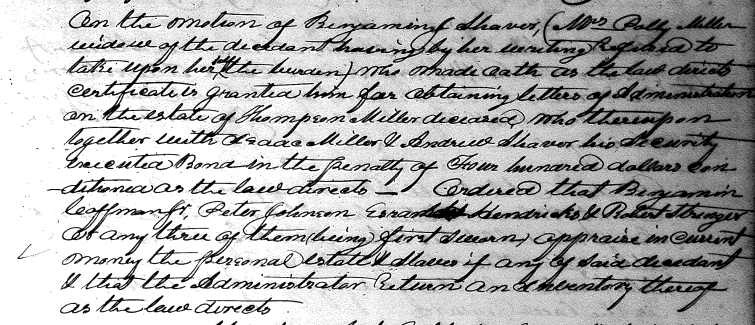 On the motion of Benjamin Shaver, (Mrs Polly Miller
widow of the decedant having by her writing Refused to
take upon her (the burden) who made oath as the law directs
certificate is granted him for obtaining letters of Administration
on the estate of Thompson Miller deceased, who thereupon
together with Isaac Miller & Andrew Shavor his security
executed Bond in the penalty of Four hundred dollars con
-ditioned as the law directs — Ordered that Benjamin
Coffman Jr, Peter Johnson Hendricks & Robert
Or any three of them (being) first sworn, appraise in current
money the personal estate & slaves if any of said decedant
& that the Administrator Return an Inventory thereof
as the law directs